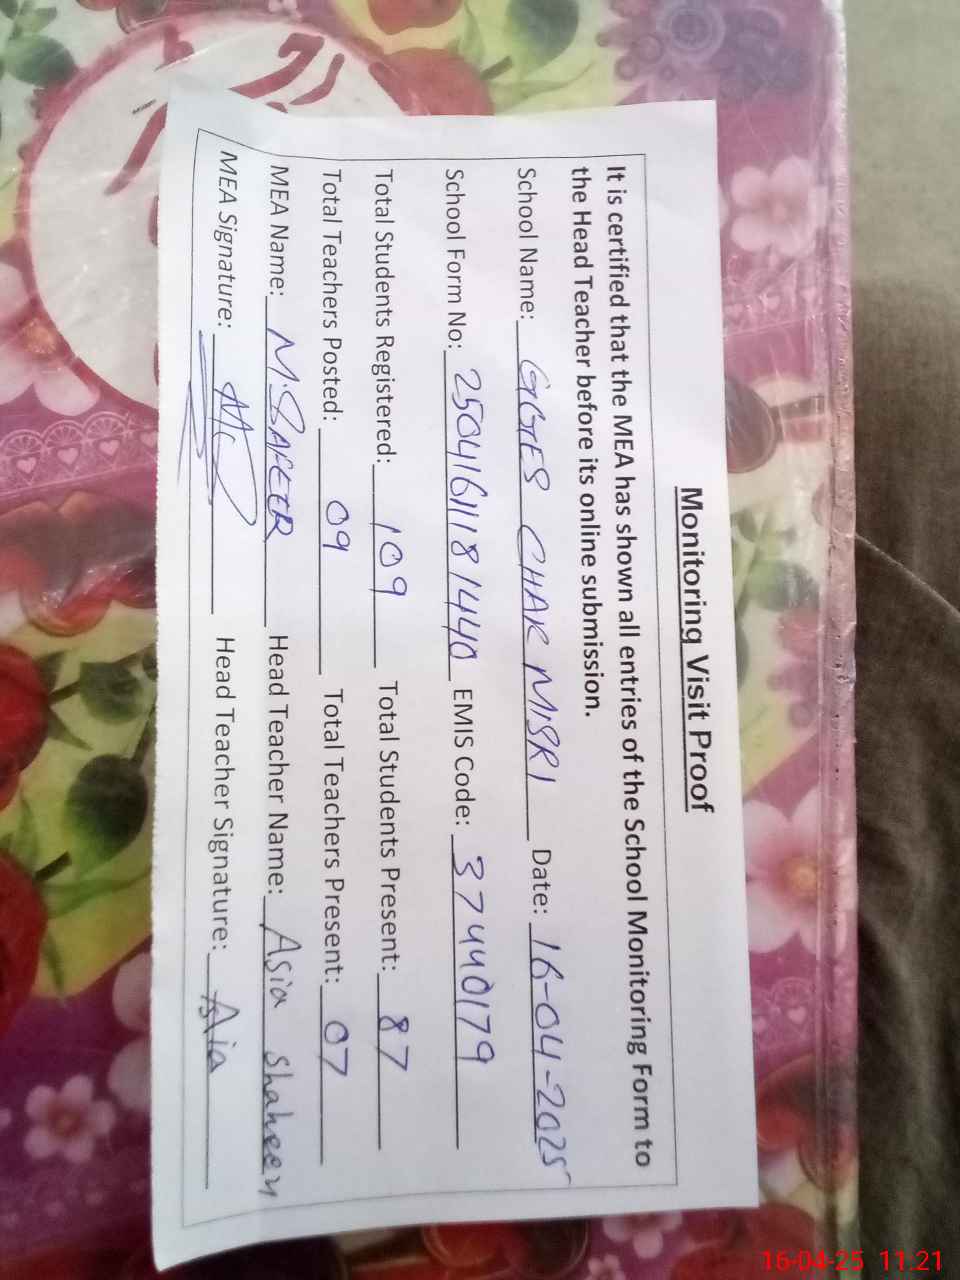 Monitoring Visit Proof
It is certified that the MEA has shown all entries of the School Monitoring Form to
the Head Teacher before its online submission.
School Name: GGES CHAK MISRI Date: 16-04-2025
School Form No: 25041611181440 EMIS Code: 37440179
Total Students Registered: 109 Total Students Present: 87
Total Teachers Posted: 09 Total Teachers Present: 07
MEA Name: M.SAFEER Head Teacher Name: Asia Shaheen
MEA Signature: Head Teacher Signature: Asia
16-04-25 11.21